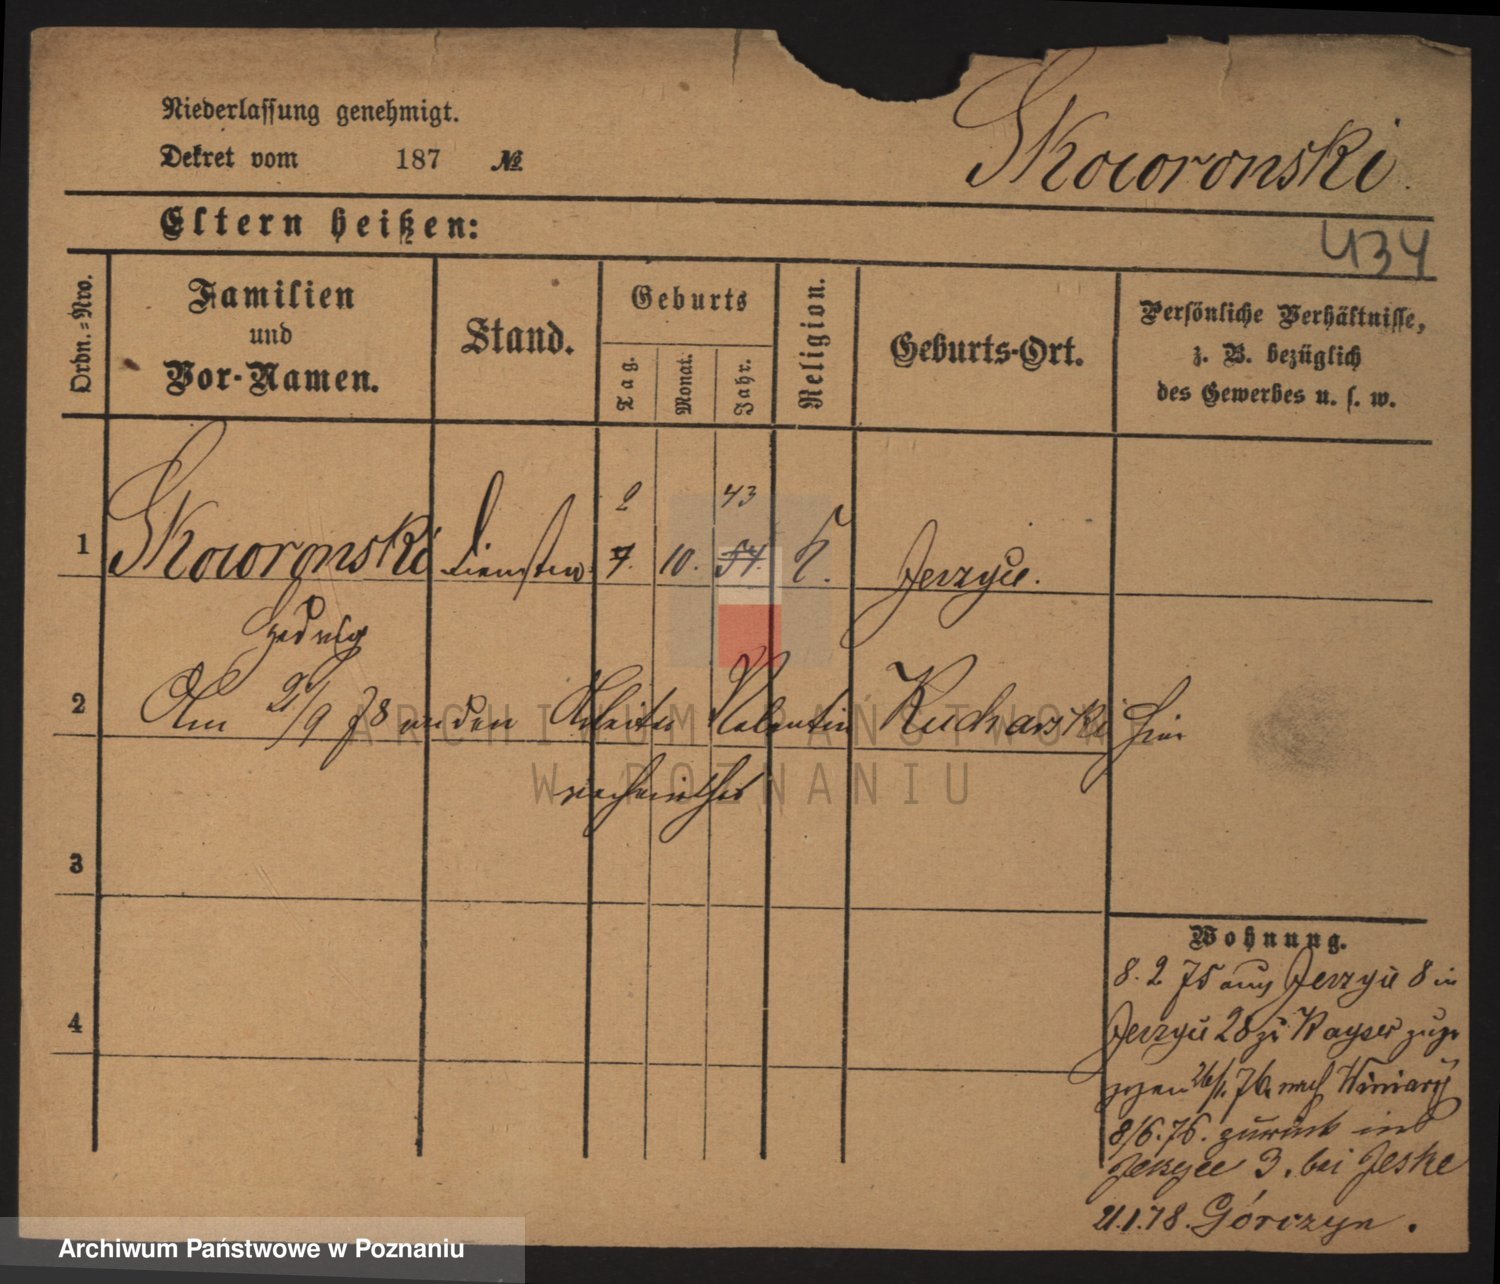 Niederlassung genehmigt.
Dekret vom 187 №
Skoworonski
Eltern heißen:
434
Ordn.=Nro.
Familien
und
Vor-Namen.
Stand.
Geburts
Tag.
Monat.
Jahr.
Religion.
Geburts-Ort.
Persönliche Verhältnisse,
z. B. bezüglich
des Gewerbes u. s. w.
2 43
1 Skoworonski 7. 10. 54. k. Jerzyce.
Hedwig
2 Am 21/9 78 an den Arbeiter Valentin Kucharski hier
verheirathet
3
4
Wohnung.
8. 2 75 aus Jerzyce 8 in
Jerzyce 28 zu Kayser zuge
zogen 26/1. 76. nach Winiary
8/6. 76. zurück
Jerzyce 3. bei Jeske
21.1.78. Górczyn.
ARCHIWUM PAŃSTWOWE
W POZNANIU
Archiwum Państwowe w Poznaniu